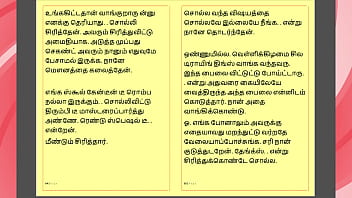 உங்ககிட்டதான் வாங்குறாரு ன்னு
எனக்கு தெரியாது.. சொல்லி
சிரித்தேன். அவரும் சிரித்துவிட்டு
அமைதியாக. அடுத்த முப்பது
செகண்ட் அவரும் நானும் எதுவுமே
பேசாமல் இருக்க. நானே
மௌனத்தைக் கலைத்தேன்.
எங்க ஸ்கூல் கேன்டீன் டீ ரொம்ப
நல்லா இருக்கும்.. சொல்லிவிட்டு
திரும்பி டீ மாஸ்டரைப்பார்த்து
அண்ணே. ரெண்டு ஸ்பெஷல் டீ..
என்றேன்.
மீண்டும் சிரித்தார்.
சொல்ல வந்த விஷயத்தை
சொல்லவே இல்லையே நீங்க.. என்று
நானே தொடர்ந்தேன்.
ஒண்ணுமில்ல. வெள்ளிக்கிழமை சில
டிராயிங் திங்ஸ் வாங்க வந்தவரு.
இந்த பைலை விட்டுட்டு போய்ட்டாரு.
-என்று அதுவரை கையிலேயே
வைத்திருந்த அந்த பைலை என்னிடம்
கொடுத்தார். நான் அதை
வாங்கிக்கொண்டு.
ஓ. எங்க போனாலும் அவருக்கு
எதையாவது மறந்துட்டு வர்றதே
வேலையாப்போச்சுங்க. சரி நான்
குடுத்துடறேன். தேங்க்ஸ்.. என்று
சிரித்துக்கொண்டே சொல்ல.